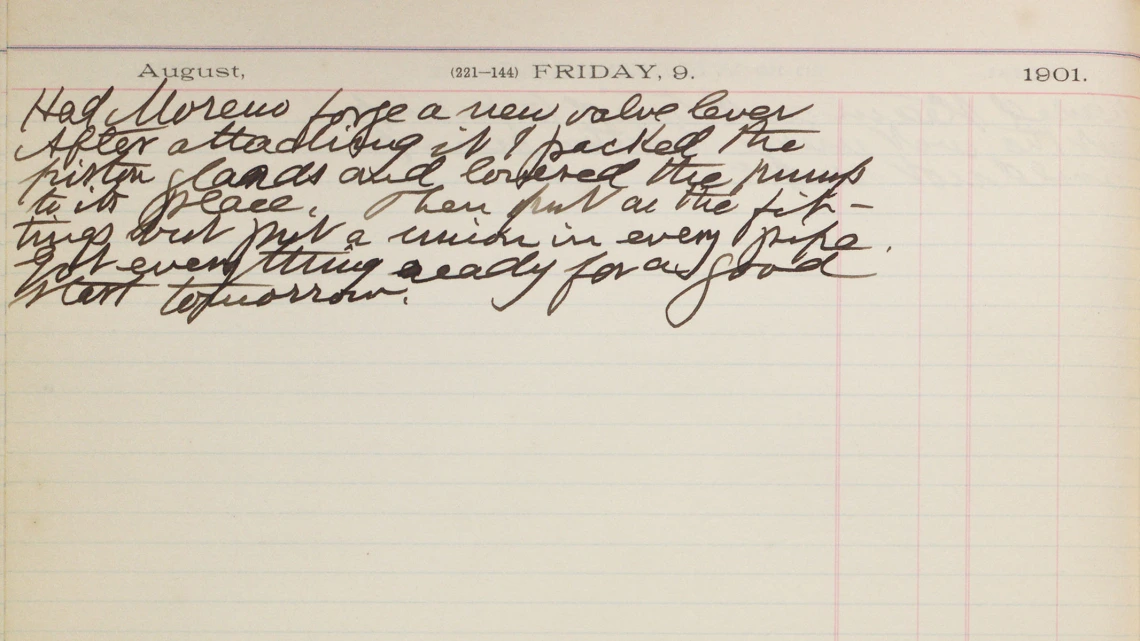 August, (221–144) FRIDAY, 9. 1901.
Had Moreno forge a new valve lever
After attaching it I packed the
piston glands and lowered the pump
to its place. Then put on the fit-
tings but put a union in every pipe.
Got everything ready for a good
start tomorrow.